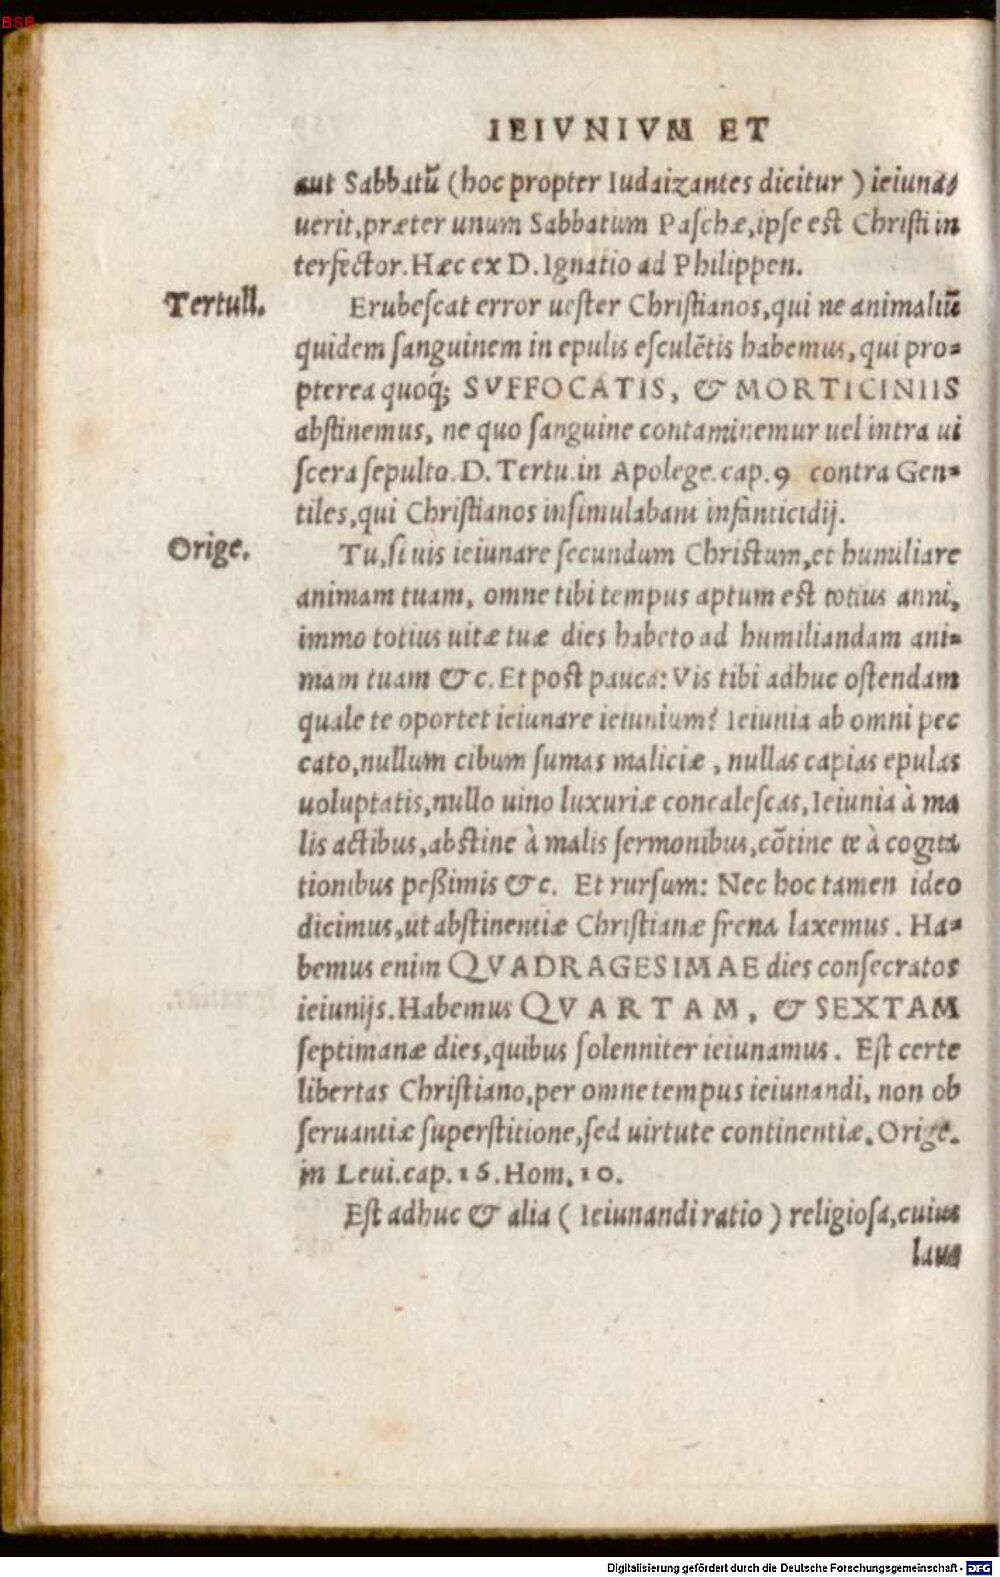 BSB
IEIVNIVM ET
aut Sabbatū (hoc propter Iudaizantes dicitur) ieiuna⸗
uerit, præter unum Sabbatum Paschæ, ipse est Christi in
terfector. Hæc ex D. Ignatio ad Philippen.
Tertull.
Erubescat error uester Christianos, qui ne animaliū
quidem sanguinem in epulis esculētis habemus, qui pro⸗
pterea quoq́; SVFFOCATIS, & MORTICINIIS
abstinemus, ne quo sanguine contaminemur uel intra ui
scera sepulto. D. Tertu. in Apolege. cap. 9 contra Gen⸗
tiles, qui Christianos insimulabant infanticidij.
Orige.
Tu, si uis ieiunare secundum Christum, et humiliare
animam tuam, omne tibi tempus aptum est totius anni,
immo totius uitæ tuæ dies habeto ad humiliandam ani⸗
mam tuam &c. Et post pauca: Vis tibi adhuc ostendam
quale te oportet ieiunare ieiunium? Ieiunia ab omni pec
cato, nullum cibum sumas maliciæ, nullas capias epulas
uoluptatis, nullo uino luxuriæ concalescas, Ieiunia à ma
lis actibus, abstine à malis sermonibus, cōtine te à cogita
tionibus peßimis &c. Et rursum: Nec hoc tamen ideo
dicimus, ut abstinentiæ Christianæ frena laxemus. Ha⸗
bemus enim QVADRAGESIMAE dies consecratos
ieiunijs. Habemus QVARTAM, & SEXTAM
septimanæ dies, quibus solenniter ieiunamus. Est certe
libertas Christiano, per omne tempus ieiunandi, non ob
seruantiæ superstitione, sed uirtute continentiæ. Orige.
in Leui. cap. 16. Hom. 10.
Est adhuc & alia (Ieiunandi ratio) religiosa, cuius
lau⸗
Digitalisierung gefördert durch die Deutsche Forschungsgemeinschaft - DFG